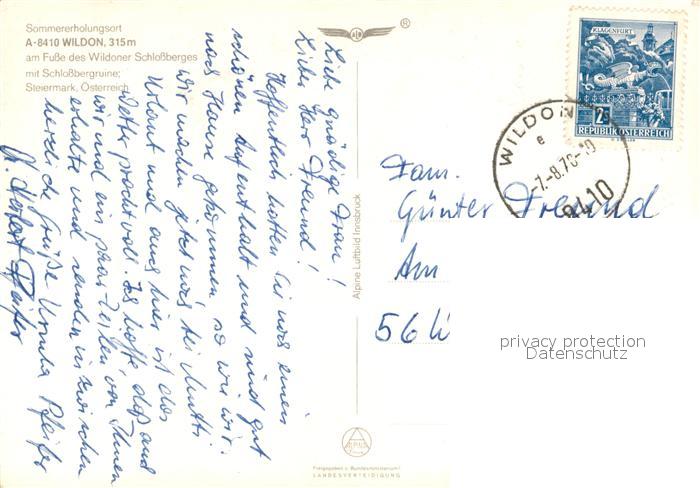 Sommererholungsort
A-8410 WILDON, 315m
am Fuße des Wildoner Schloßberges
mit Schloßbergruine;
Steiermark, Österreich
®
Liebe gnädige Frau!
Lieber Herr Freund!
Hoffentlich hatten Sie noch einen
schönen Aufenthalt und sind gut
nach Hause gekommen so wie wir.
Wir machen jetzt noch bei Mutti
Urlaub und auch hier ist das
Wetter prachtvoll. Ich hoffe daß auch
wir mal ein paar Zeilen von Ihnen
erhalten und senden inzwischen
herzliche Grüße Ursula Pfeifer
Pfeifer
Alpine Luftbild Innsbruck
ALPINE
Freigegeben v. Bundesministerium f.
LANDESVERTEIDIGUNG
KLAGENFURT
2S
REPUBLIK ÖSTERREICH
WILDON
e
-7.-8.78-10
8410
Fam.
Günter Freund
Am
56
privacy protection
Datenschutz